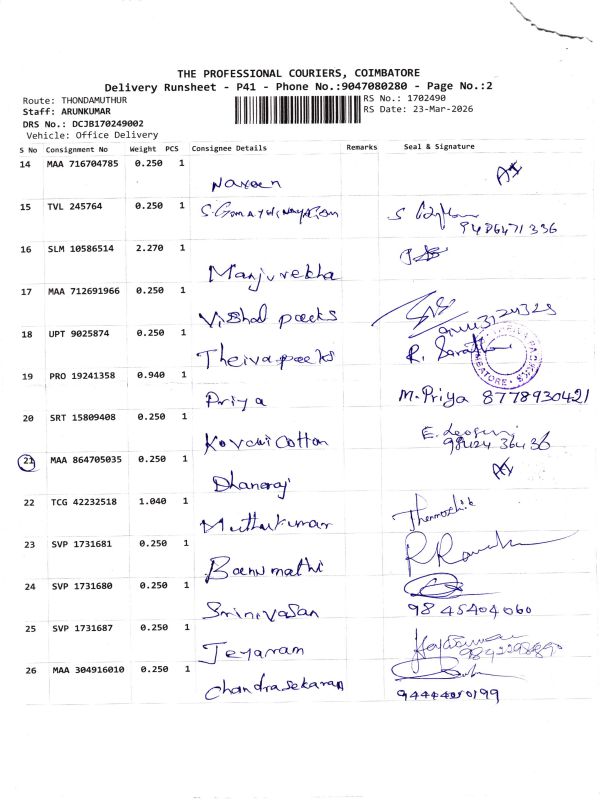 THE PROFESSIONAL COURIERS, COIMBATORE
Delivery Runsheet - P41 - Phone No.:9047080280 - Page No.:2
Route: THONDAMUTHUR
Staff: ARUNKUMAR
DRS No.: DCJB170249002
Vehicle: Office Delivery
RS No.: 1702490
RS Date: 23-Mar-2026
S No Consignment No Weight PCS Consignee Details Remarks Seal & Signature
14 MAA 716704785 0.250 1
Naveen
15 TVL 245764 0.250 1
9486471336
16 SLM 10586514 2.270 1
Manjurekha
17 MAA 712691966 0.250 1
Vishal packs
18 UPT 9025874 0.250 1
Theiva packs R.
19 PRO 19241358 0.940 1
Priya M. Priya 8778930421
20 SRT 15809408 0.250 1
Kovai Cotton E.
98424 36436
21 MAA 864705035 0.250 1
Dhanaraj
22 TCG 42232518 1.040 1
Muthukumar
23 SVP 1731681 0.250 1
Banumathi
24 SVP 1731680 0.250 1
Srinivasan 98 45404060
25 SVP 1731687 0.250 1
Jeyaram
26 MAA 304916010 0.250 1
Chandrasekaran